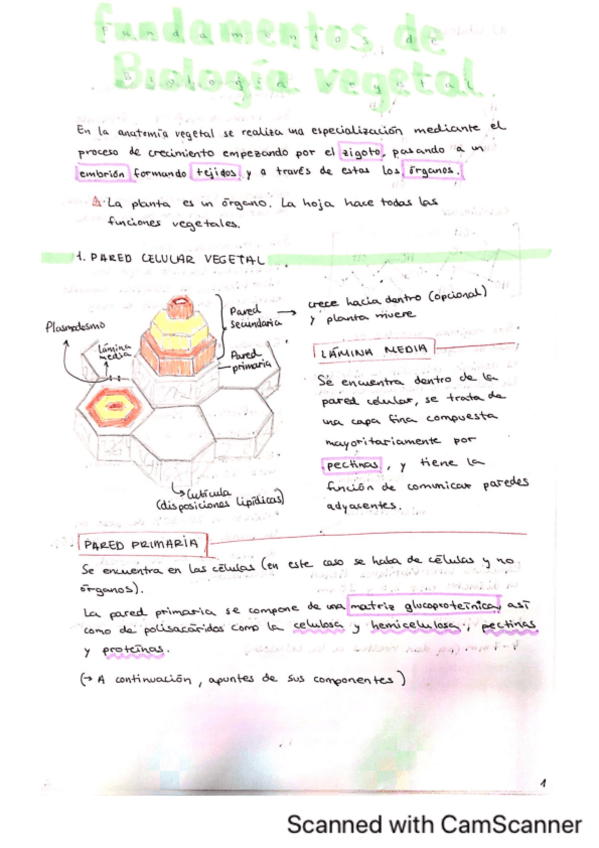 fundamentos de
Biología vegetal
En la anatomía vegetal se realiza una especialización mediante el
proceso de crecimiento empezando por el zigoto, pasando a un
embrión formando tejidos y a través de estos los órganos.
⚠ La planta es un órgano. La hoja hace todas las
funciones vegetales.
1. PARED CELULAR VEGETAL
Plasmodesmo
Lámina
media
Pared
secundaria
→ crece hacia dentro (opcional)
y planta muere
Pared
primaria
Cutícula
(disposiciones lipídicas)
LÁMINA MEDIA
Se encuentra dentro de la
pared celular, se trata de
una capa fina compuesta
mayoritariamente por
pectinas, y tiene la
función de comunicar paredes
adyacentes.
PARED PRIMARIA
Se encuentra en las células (en este caso se habla de células y no
órganos).
La pared primaria se compone de una matriz glucoproteínica, así
como de polisacáridos como la celulosa y hemicelulosa, pectinas
y proteínas.
(→ A continuación, apuntes de sus componentes)
1
Scanned with CamScanner